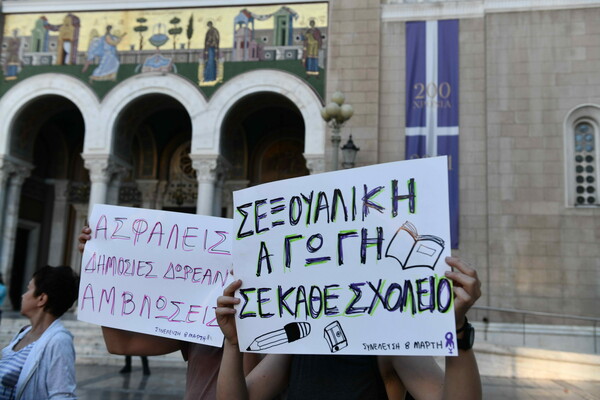 ΑΣΦΑΛΕΙΣ
ΔΗΜΟΣΙΕΣ ΔΩΡΕΑΝ
ΑΜΒΛΩΣΕΙΣ
ΣΥΝΕΛΕΥΣΗ 8 ΜΑΡΤΗ
ΣΕΞΟΥΑΛΙΚΗ
ΑΓΩΓΗ
ΣΕ ΚΑΘΕ ΣΧΟΛΕΙΟ
ΣΥΝΕΛΕΥΣΗ 8 ΜΑΡΤΗ
200
ΧΡΟΝΙΑ